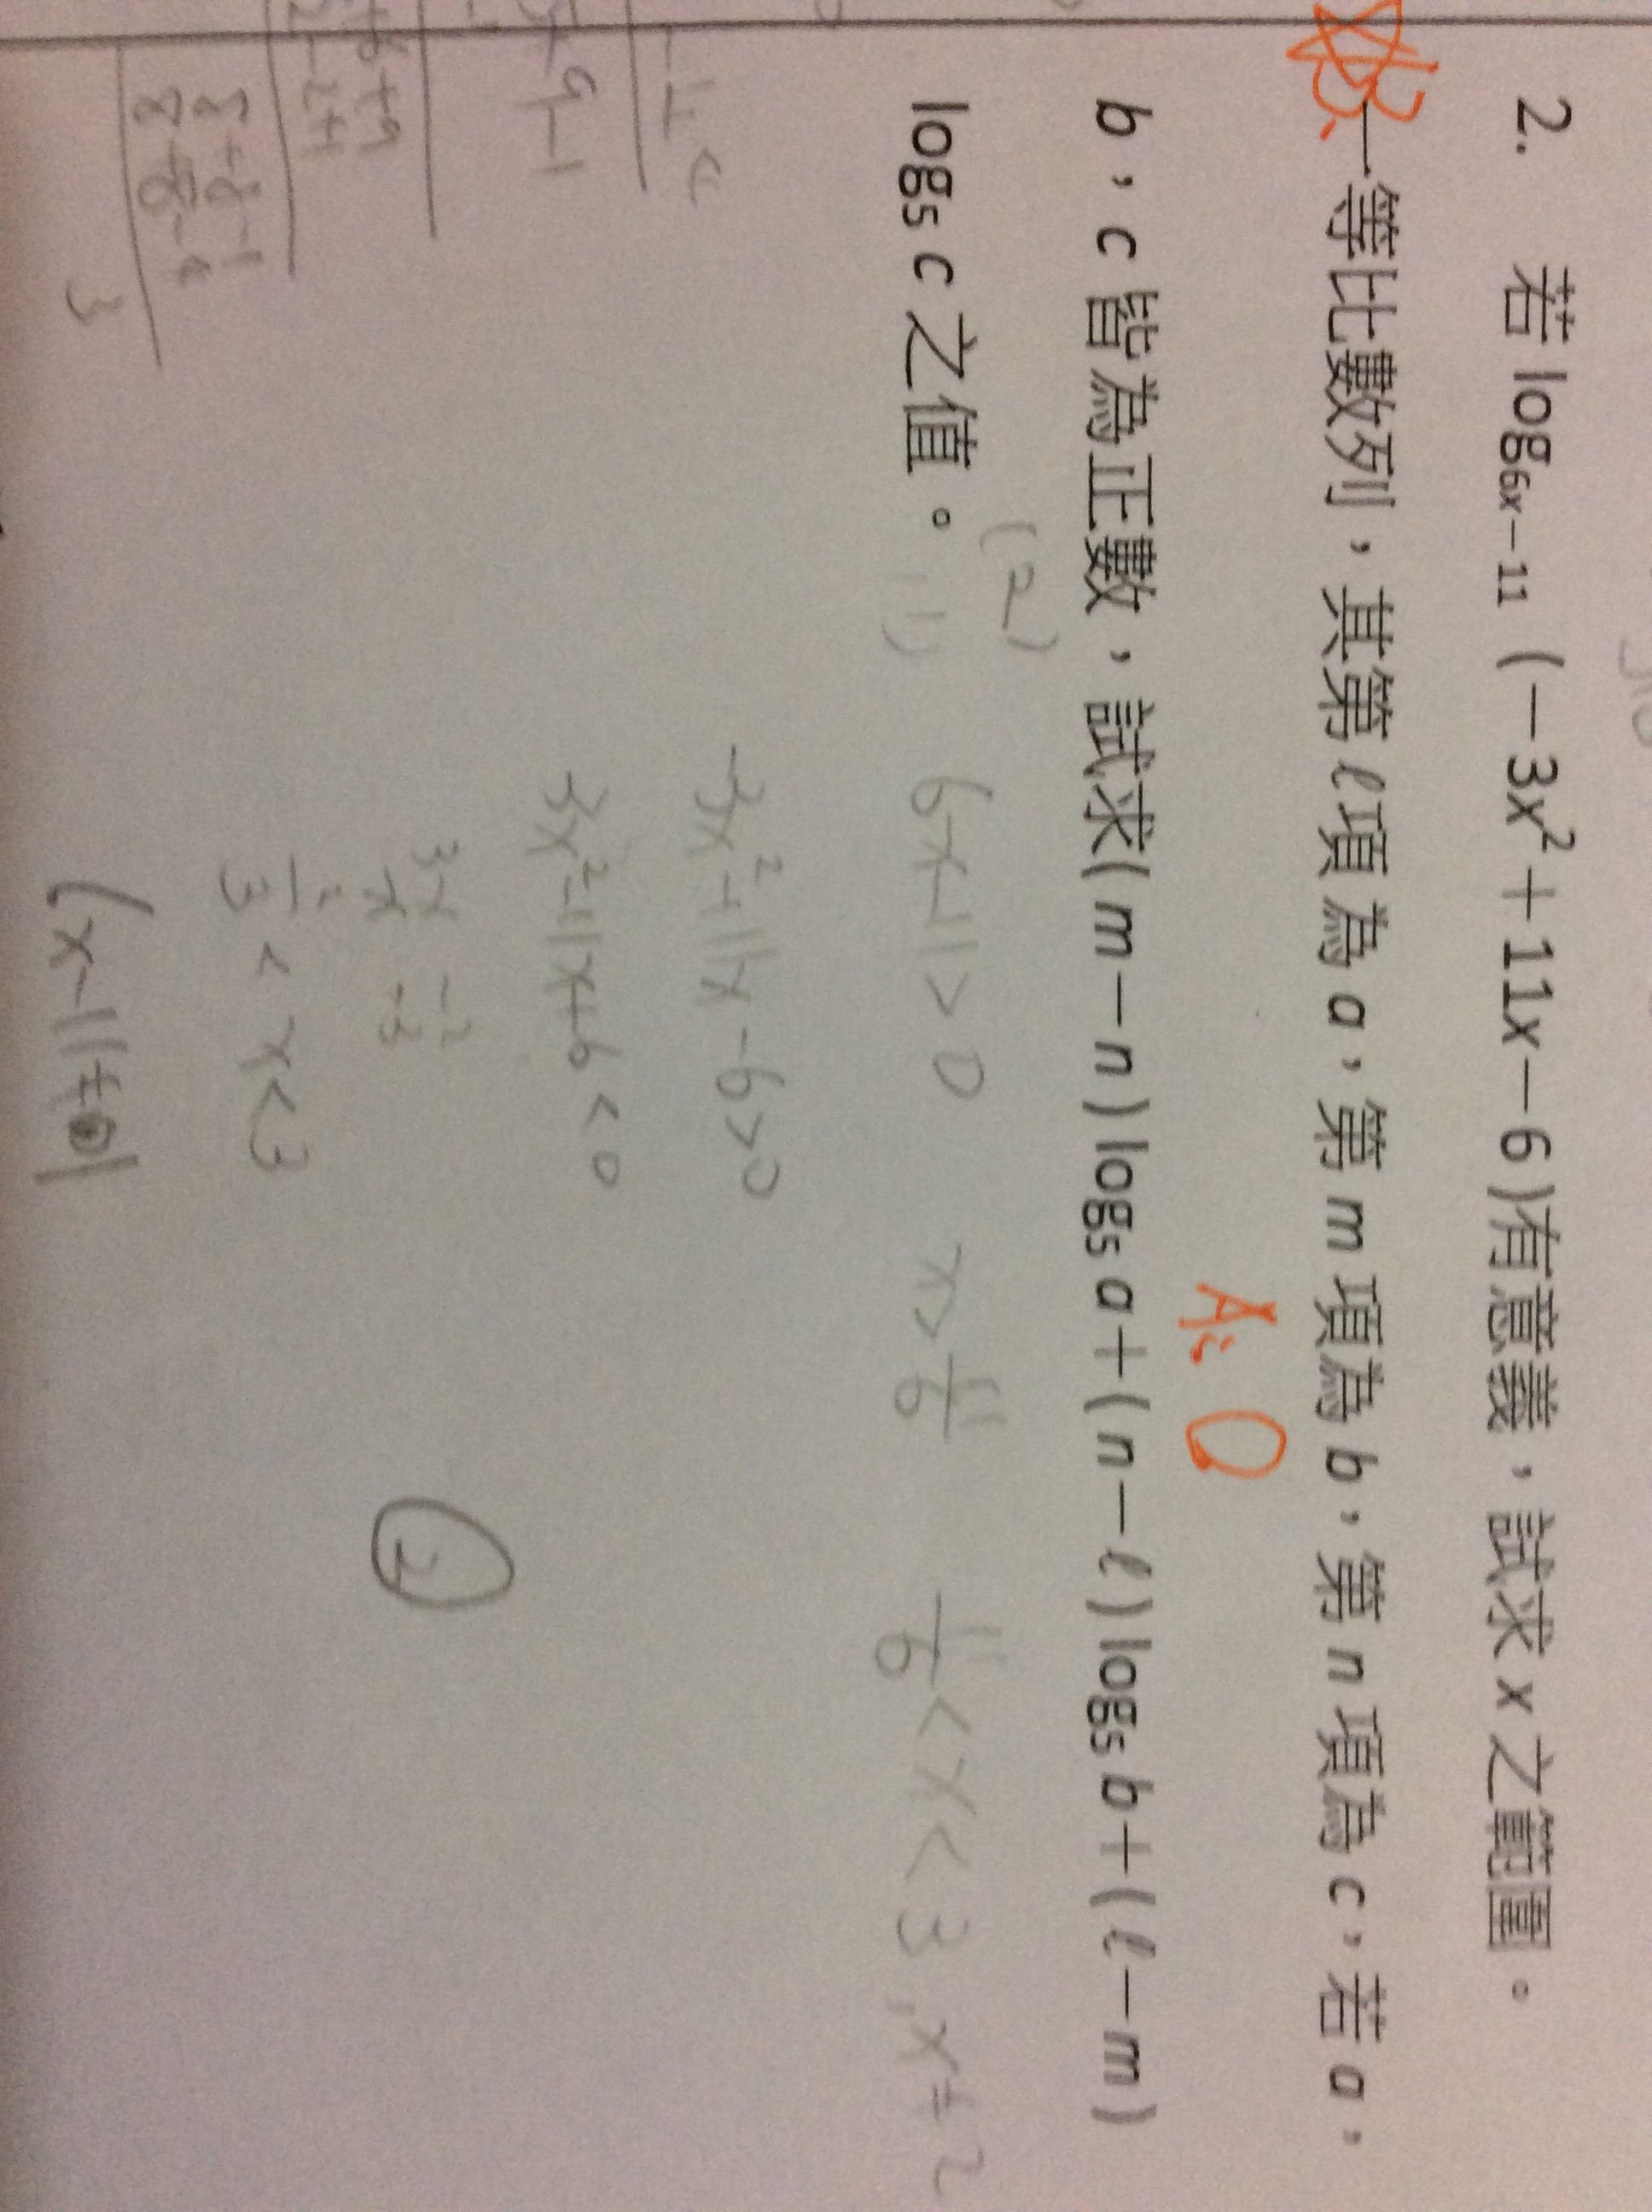 2. 若 log₆ₓ₋₁₁ (－3x²＋11x－6)有意義，試求 x 之範圍。
3. 一等比數列，其第 ℓ 項為 a，第 m 項為 b，第 n 項為 c，若 a，
A: 0
b，c 皆為正數，試求(m－n)log₅ a＋(n－ℓ)log₅ b＋(ℓ－m)
log₅ c 之值。
(2)
6x-11>0 x>11/6 11/6<x<3, x≠2
-3x²+11x-6>0
3x²-11x+6<0
3x -2
x -3
2/3<x<3
6x-11≠